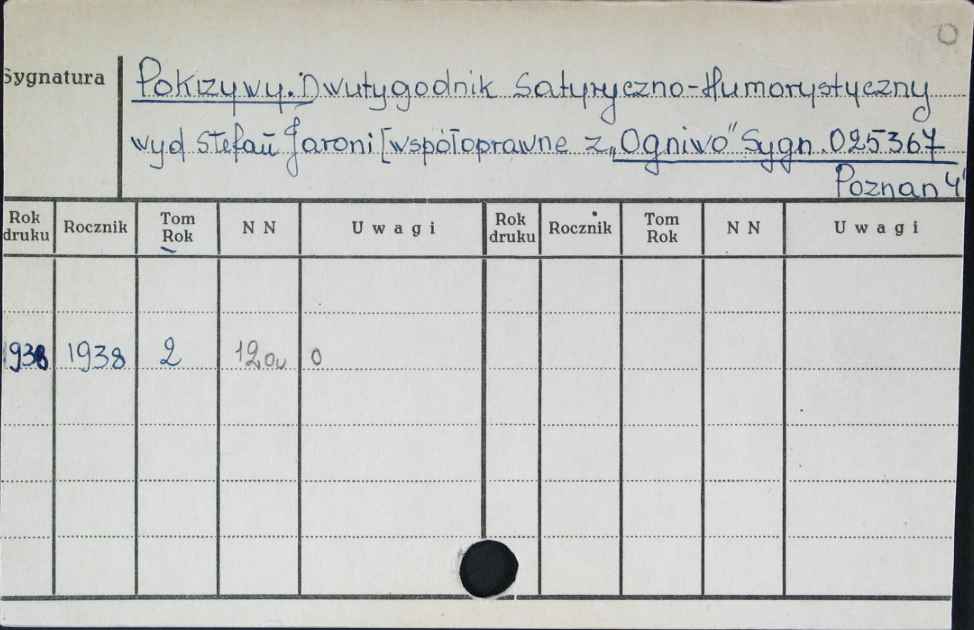 Sygnatura
Pokrzywy. Dwutygodnik Satyryczno-Humorystyczny
wyd Stefan Jaroni [współoprawne z „Ogniwo" Sygn. 025367
Poznan 4°
Rok druku Rocznik Tom Rok N N Uwagi Rok druku Rocznik Tom Rok N N Uwagi
1938 1938 2 0